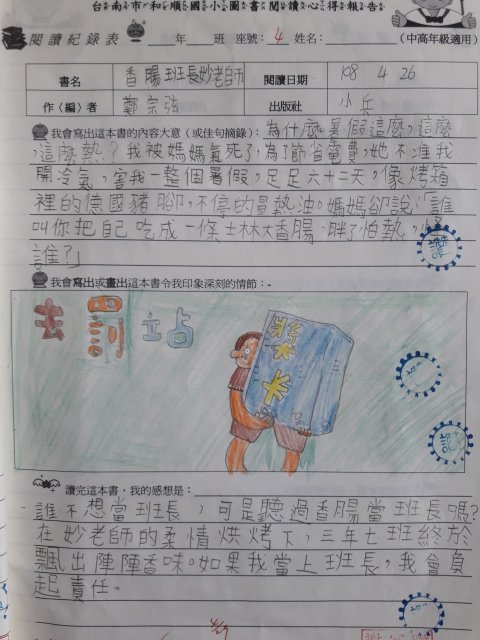 台南市和順國小圖書閱讀心得報告
閱讀紀錄表 年 班 座號：4 姓名： （中高年級適用）
書名 香腸班長妙老師 閱讀日期 108 4 26
作〈編〉者 鄭宗弦 出版社 小兵
我會寫出這本書的內容大意（或佳句摘錄）：為什麼暑假這麼，這麼
，這麼熱？我被媽媽氣死了，為了節省電費，她不准我
開冷氣，害我一整個暑假，足足六十二天，像烤箱
裡的德國豬腳，不停的冒熱油。媽媽卻說：「誰
叫你把自己吃成一條士林大香腸，胖了怕熱，怪
誰？」
我會寫出或畫出這本書令我印象深刻的情節：
去罰站
獎卡
讀完這本書，我的感想是：
誰不想當班長，可是聽過香腸當班長嗎？
在妙老師的柔情烘烤下，三年七班終於
飄出陣陣香味。如果我當上班長，我會負
起責任。